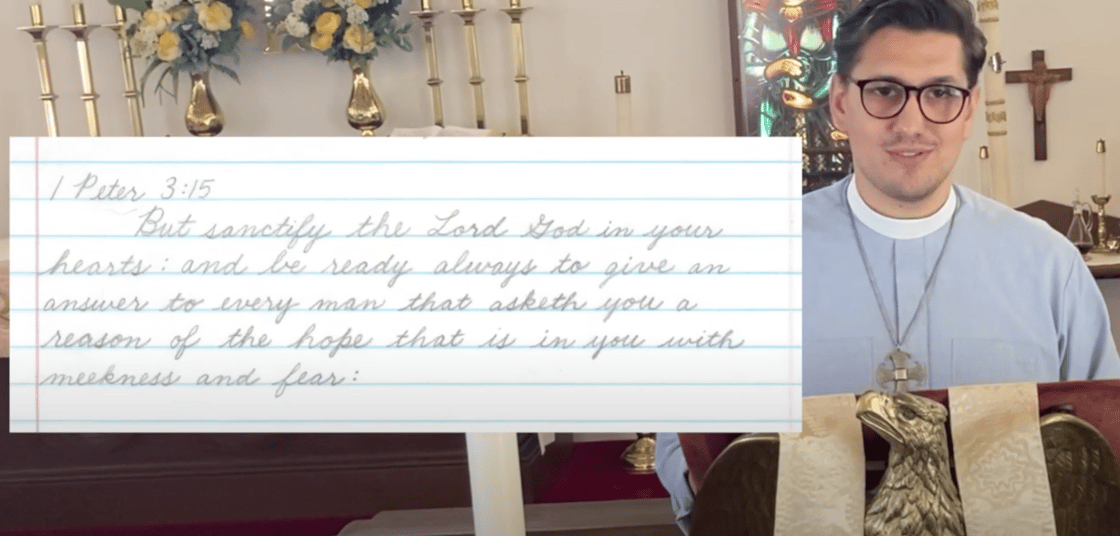 1 Peter 3:15
But sanctify the Lord God in your
hearts: and be ready always to give an
answer to every man that asketh you a
reason of the hope that is in you with
meekness and fear: